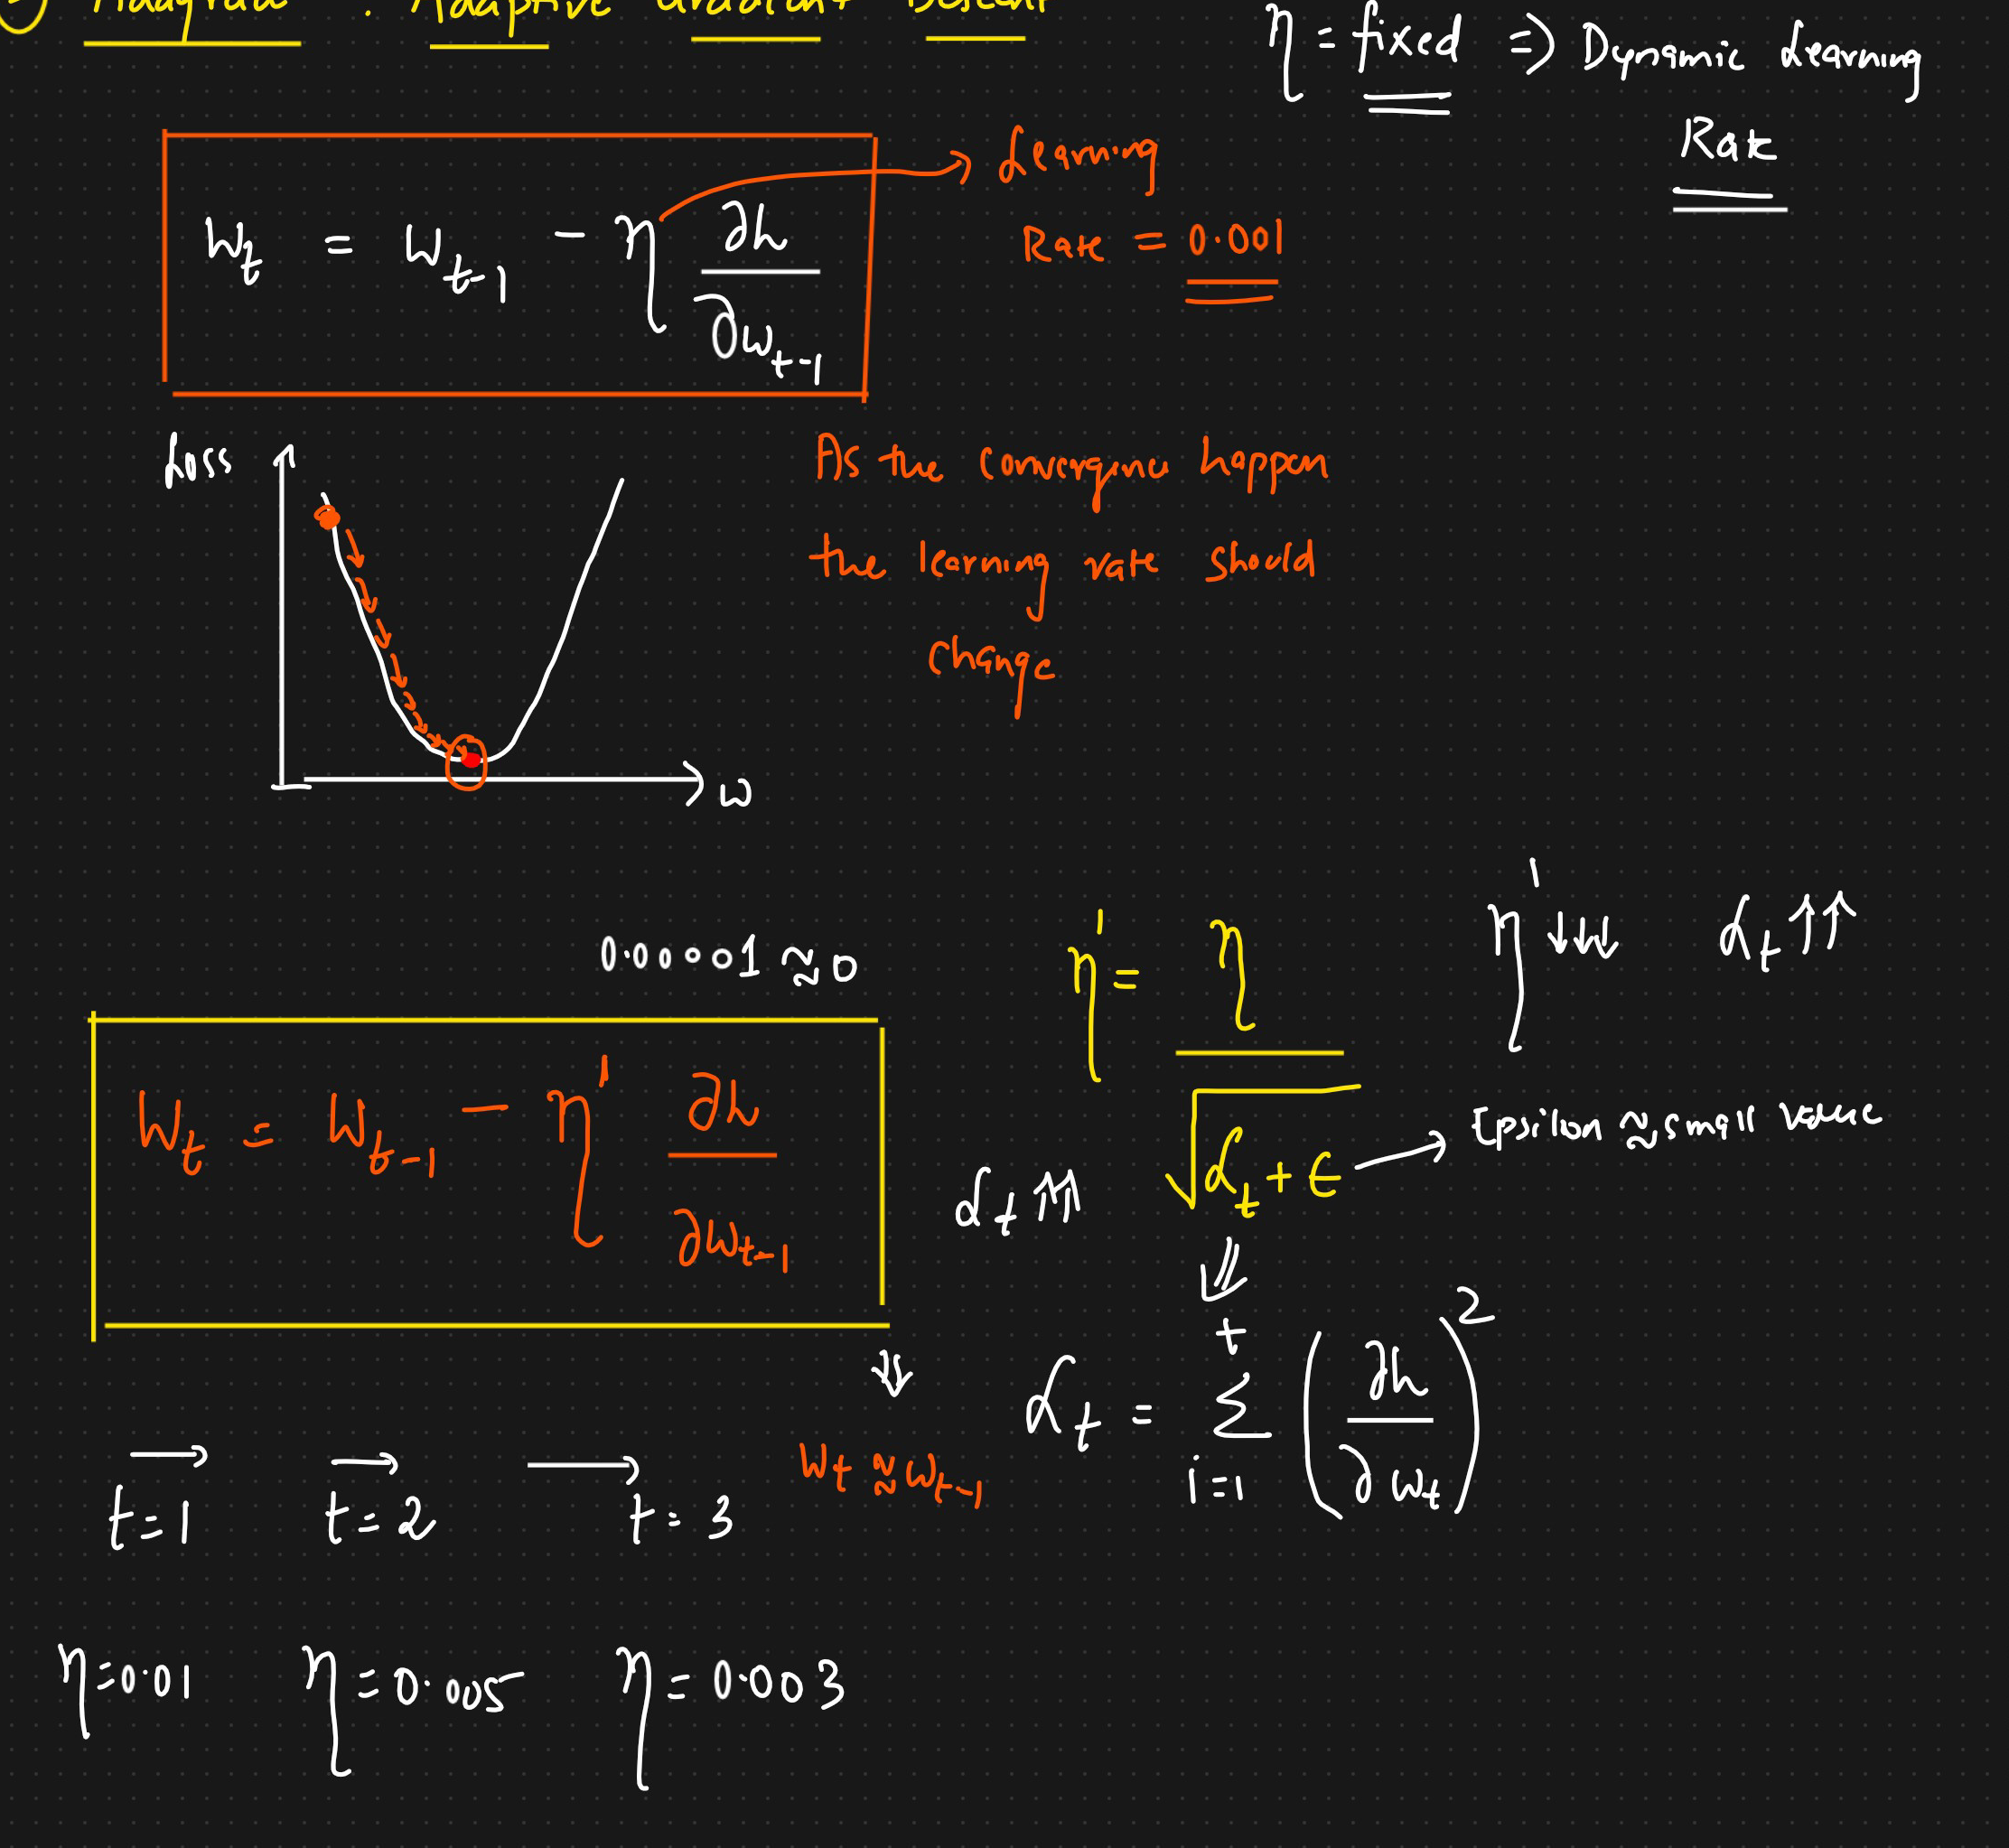 Adagrad : Adaptive Gradient Descent
η = fixed ⇒ Dynamic Learning
Rate
W_t = W_{t-1} − η ∂L/∂w_{t-1} → Learning
Rate = 0.001
Loss
As the convergence happen
the learning rate should
change
w
0.00001 ≈ 0
η' = η / √(α_t + ε)
η' ↓↓↓ α_t ↑↑
W_t = W_{t-1} − η' ∂L/∂w_{t-1}
α_t ↑↑
→ Epsilon ≈ small value
α_t = Σ_{i=1}^{t} (∂L/∂w_t)^2
W_t ≈ W_{t-1}
t=1 t=2 t=3
η=0.01 η=0.005 η=0.003